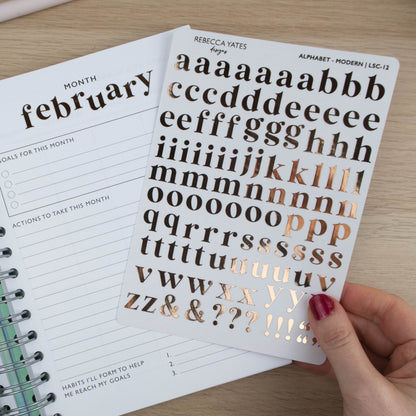 MONTH
february
GOALS FOR THIS MONTH
ACTIONS TO TAKE THIS MONTH
HABITS I'LL FORM TO HELP
ME REACH MY GOALS
1.
2.
3.
REBECCA YATES
designs
ALPHABET - MODERN | LSC-12
aaaaaaabbb
cccdddeeeee
eefffggghhh
iiiiiiijjkkllll
mmmmnnnnn
oooooooppp
qqrrrrssssss
tttttuuuuuvv
vwwwxxxyyy
zz&&&???!!!"